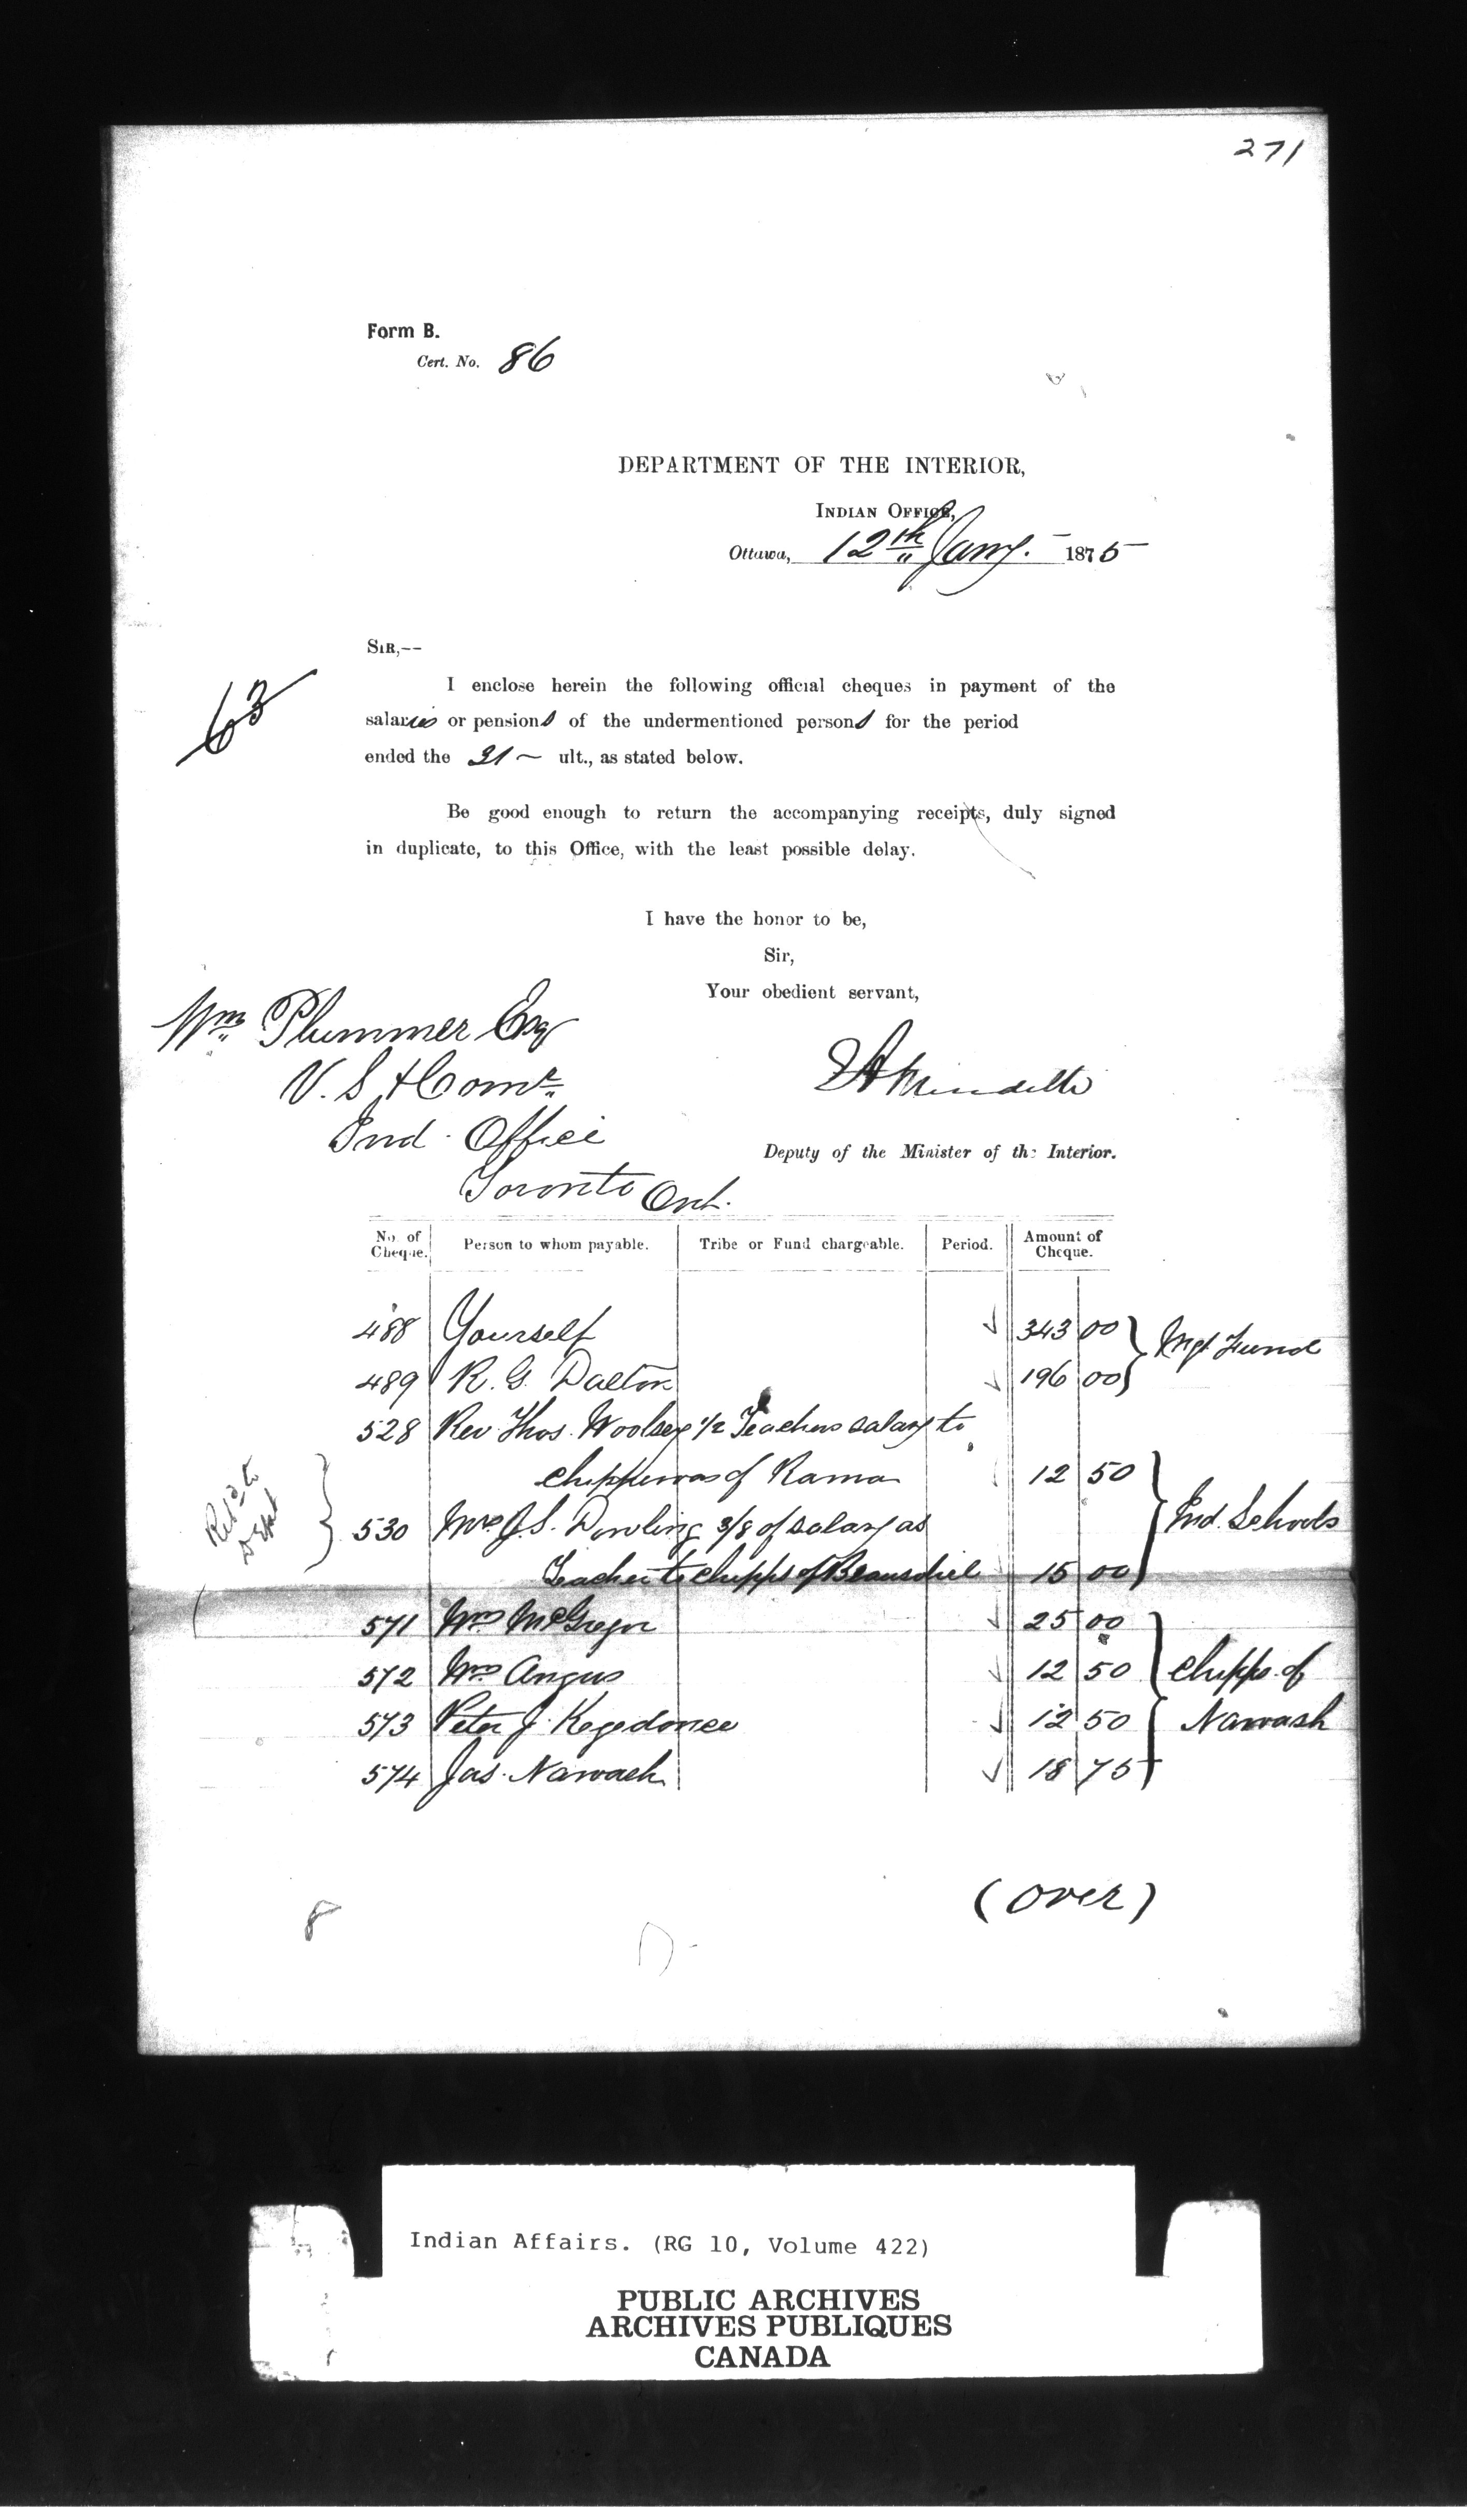 271
Form B.
Cert. No. 86
DEPARTMENT OF THE INTERIOR,
INDIAN OFFICE,
Ottawa, 12th Jany. 1875
SIR,--
I enclose herein the following official cheques in payment of the
salaries or pensions of the undermentioned persons for the period
ended the 31 ~ ult., as stated below.
63
Be good enough to return the accompanying receipts, duly signed
in duplicate, to this Office, with the least possible delay.
I have the honor to be,
Sir,
Your obedient servant,
Wm Plummer Esq
V. S & Comr
Ind. Office
Toronto Ont.
Deputy of the Minister of the Interior.
No. of Cheque. Person to whom payable. Tribe or Fund chargeable. Period. Amount of Cheque.
488 Yourself 343 00
489 R. G. Dalton 196 00 } Mgt Fund
528 Rev. Thos. Woolsey 1/2 Teachers salary to
chippewas of Rama 12 50
Retd to Dept
530 Mrs J. S. Dowling 3/8 of salary as
Teacher to chipps of Beausoliel 15 00 } Ind. Schools
571 Wm McGregor 25 00
572 Wm Angus 12 50
573 Peter J. Kegedonce 12 50
574 Jas. Nawash 18 75 } chipps. of Nawash
(over)
8
Indian Affairs. (RG 10, Volume 422)
PUBLIC ARCHIVES
ARCHIVES PUBLIQUES
CANADA